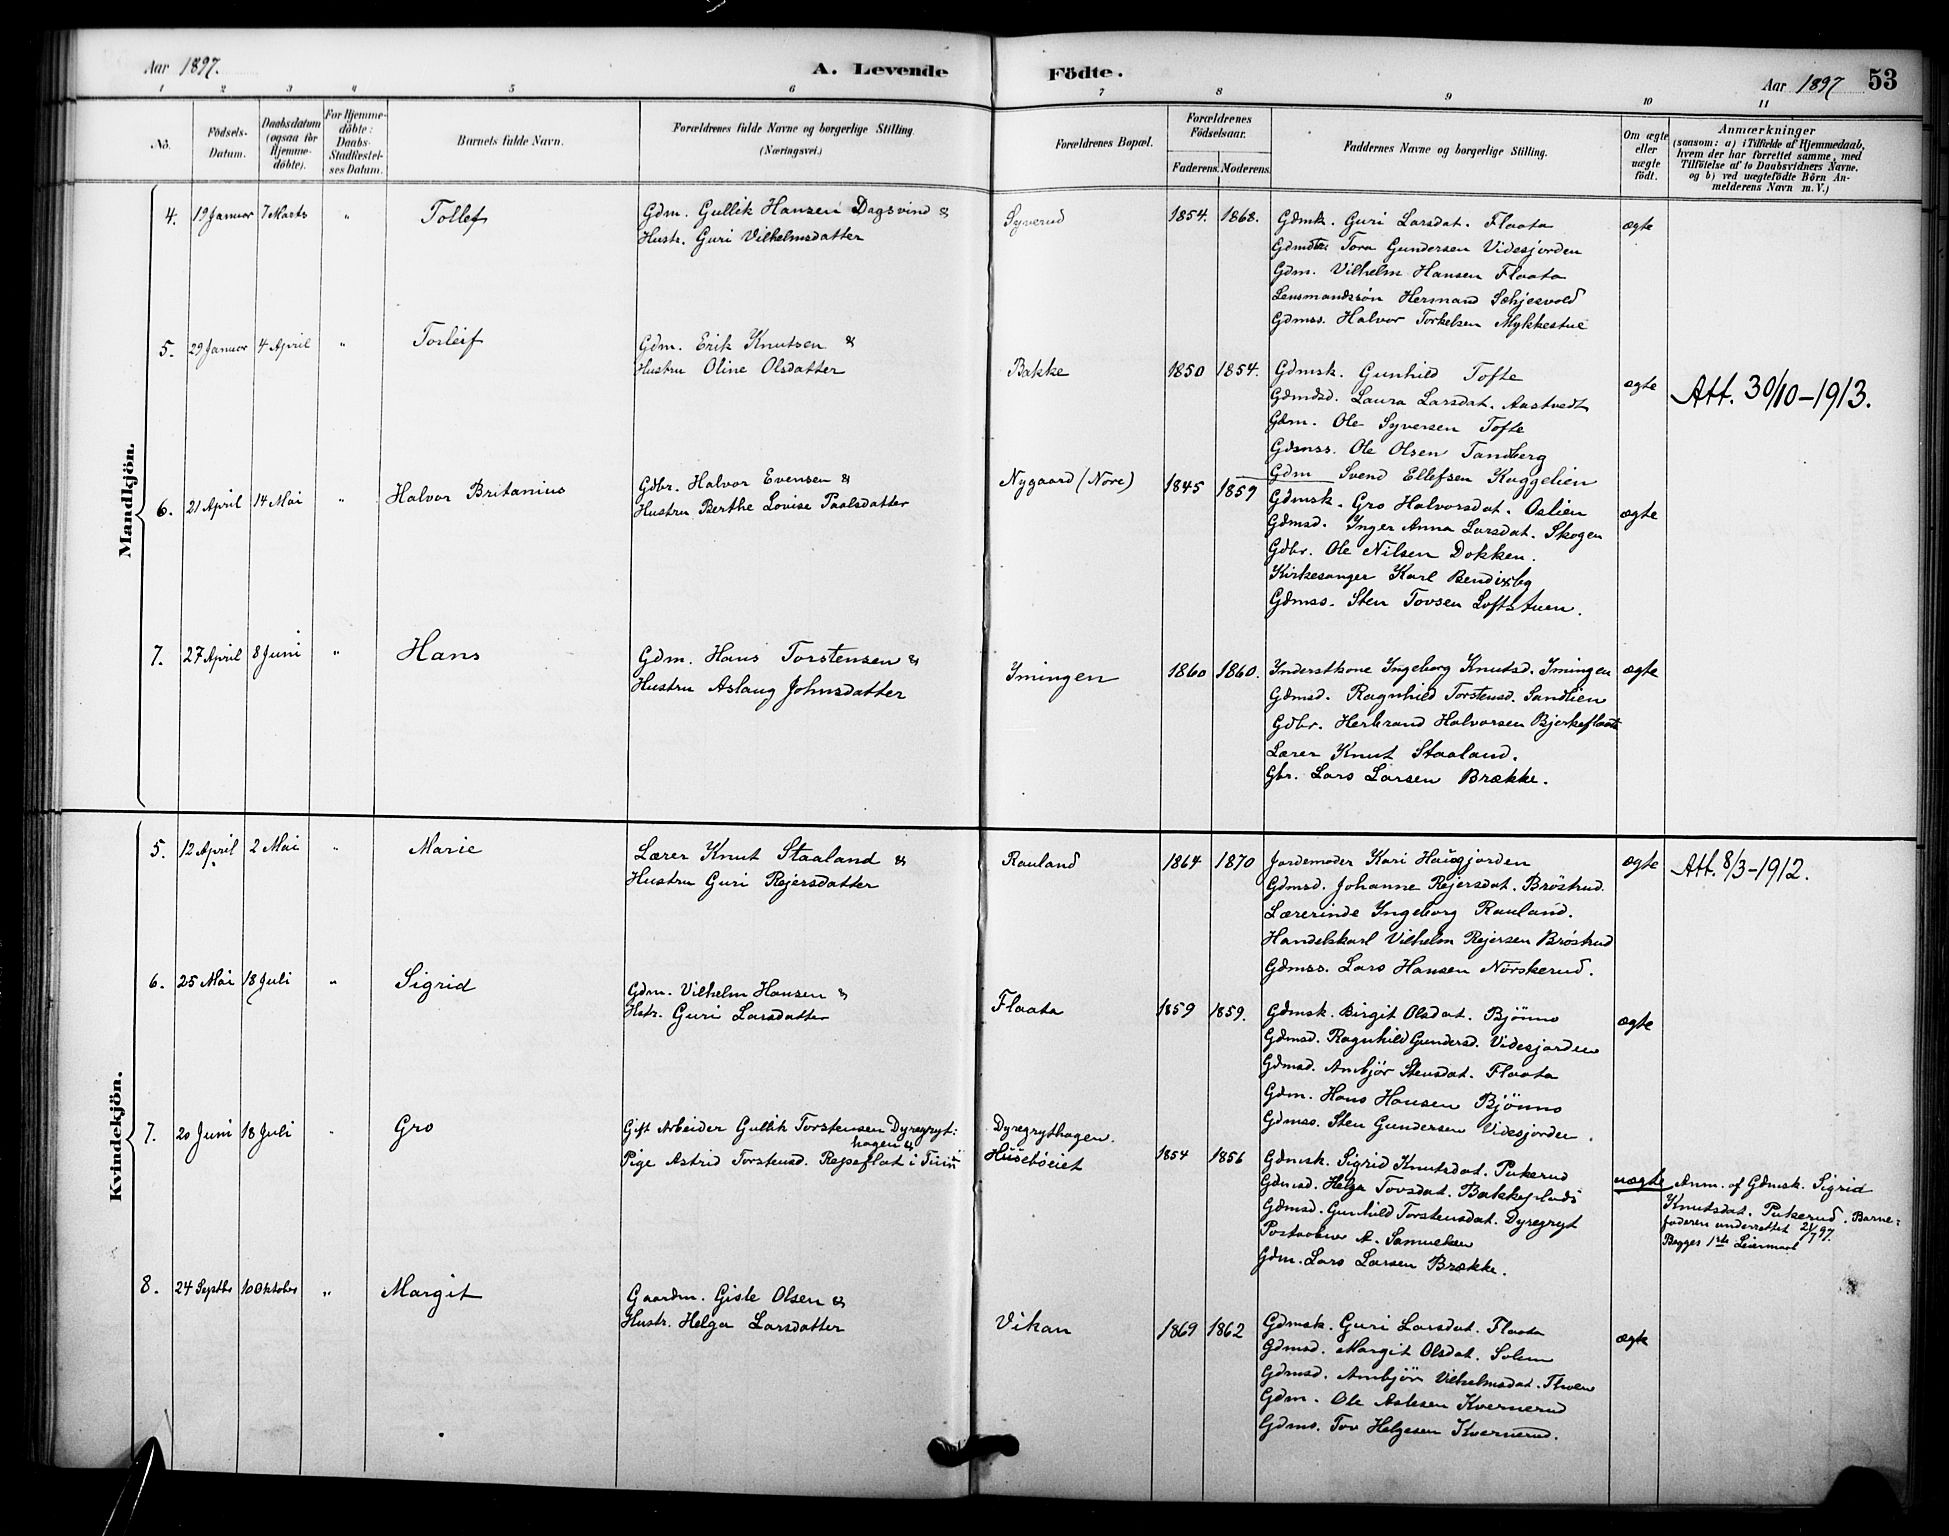 Aar 1897.
A. Levende Födte.
Aar 1897 53
1 2 3 4 5 6 7 8 9 10 11
No.
Födsels-Datum.
Daabsdatum (ogsaa for Hjemmedöbte).
For Hjemmedöbte: Daabs-Stadfæstelses Datum.
Barnets fulde Navn.
Forældrenes fulde Navne og borgerlige Stilling. (Næringsvei.)
Forældrenes Bopæl.
Forældrenes Födselsaar.
Faderens. Moderens.
Faddernes Navne og borgerlige Stilling.
Om ægte eller uægte födt.
Anmærkninger
(saasom: a) i Tilfælde af Hjemmedaab,
hvem der har forrettet samme, med
Tilföielse af to Daabsvidners Navne.
og b) ved uægtefödte Börn An-
melderens Navn m. V.)
Mandkjön.
4. 19 Januar 7 Marts " Tollef
Gdm. Gullik Hansen Dagsvind &
Hustr. Guri Vilhelmsdatter
Syverud 1854. 1868.
Gdmsk. Guri Larsdat. Flaata
Gdmdtr. Tora Gundersen Videsjorden
Gdm. Vilhelm Hansen Flaata
Lensmandssön Hermand Schjesvold
Gdmss. Halvor Torkelsen Mykkestue
ægte
5. 29 Januar 4 April " Torleif
Gdm. Erik Knutsen &
Hustru Oline Olsdatter
Bakke 1850 1854.
Gdmsk. Gunhild Tofte
Gdmdsd. Laura Larsdat. Aastvedt
Gdm. Ole Syversen Tofte
Gdmss. Ole Olsen Tandberg
Gdm Svend Ellefsen Kaggelien
ægte
Att. 30/10-1913.
6. 21 April 14 Mai " Halvor Britanius
Gdbr. Halvor Evensen &
Hustru Berthe Lovise Paalsdatter
Nygaard (Nore) 1845 1859
Gdmsk. Gro Halvorsdat. Oslien
Gdmsd. Inger Anna Larsdat. Skogen
Gdbr. Ole Nilsen Dokken.
Kirkesanger Karl Bendixby
Gdmss. Sten Tovsen Loftstuen.
ægte
7. 27 April 8 Juni " Hans
Gdm. Hans Torstensen &
Hustru Aslaug Johnsdatter
Imingen 1860 1860.
Inderstkone Ingeborg Knutsd. Imingen
Gdmsd. Ragnhild Torstensd. Sandlien
Gdbr. Herbrand Halvorsen Bjerkeflaata
Lærer Knut Staaland.
Gbr. Lars Larsen Brække.
ægte
Kvindekjön.
5. 12 April 2 Mai " Marie
Lærer Knut Staaland &
Hustru Guri Rejersdatter
Rauland 1864 1870
Jordemoder Kari Haugjorden
Gdmsd. Johanne Rejersdat. Bröstrud.
Lærerinde Ingeborg Rauland.
Handelskarl Vilhelm Rejersen Bröstrud
Gdmss. Lars Hansen Nörskerud.
ægte
Att. 8/3-1912.
6. 25 Mai 18 Juli " Sigrid
Gdm. Vilhelm Hansen &
Hstr. Guri Larsdatter
Flaata 1859 1859.
Gdmsk. Birgit Olsdat. Bjönno
Gdmsd. Ragnhild Gundersd. Videsjorden
Gdmsd. Ambjör Stensdat. Flaata
Gdm. Hans Hansen Bjönno
Gdmss. Sten Gundersen Videsjorden.
ægte
7. 20 Juni 18 Juli " Gro
Gift Arbeider Gullik Torstensen Dyregryt:
hagen &
Pige Astrid Torstensd. Rejseflat i Tuin
Dyregrythagen.
Husebøeiet
1854 1856
Gdmsk. Sigrid Knutsdat. Pukerud
Gdmsd. Helga Tovsdat. Bakkeplads
Gdmsd. Gunhild Torstensdat. Dyregryt
Postaabner A. Samuelsen
Gdm. Lars Larsen Brække.
uægte
Anm. af Gdmsk. Sigrid
Knutsdat. Pukerud. Barne:
faderen underrettet 21/7 97.
Begges 1ste Leiermaal
8. 24 Septbr 10 Oktober " Margit
Gaardm. Gisle Olsen &
Hustr. Helga Larsdatter
Vikan 1869 1862
Gdmsk. Guri Larsdat. Flaata
Gdmsd. Margit Olsdat. Solem
Gdmsd. Ambjör Vilhelmsdat.
Gdm. Ole Aslesen Kvernerud
Gdms. Tov Helgesen Kvernerud.
ægte